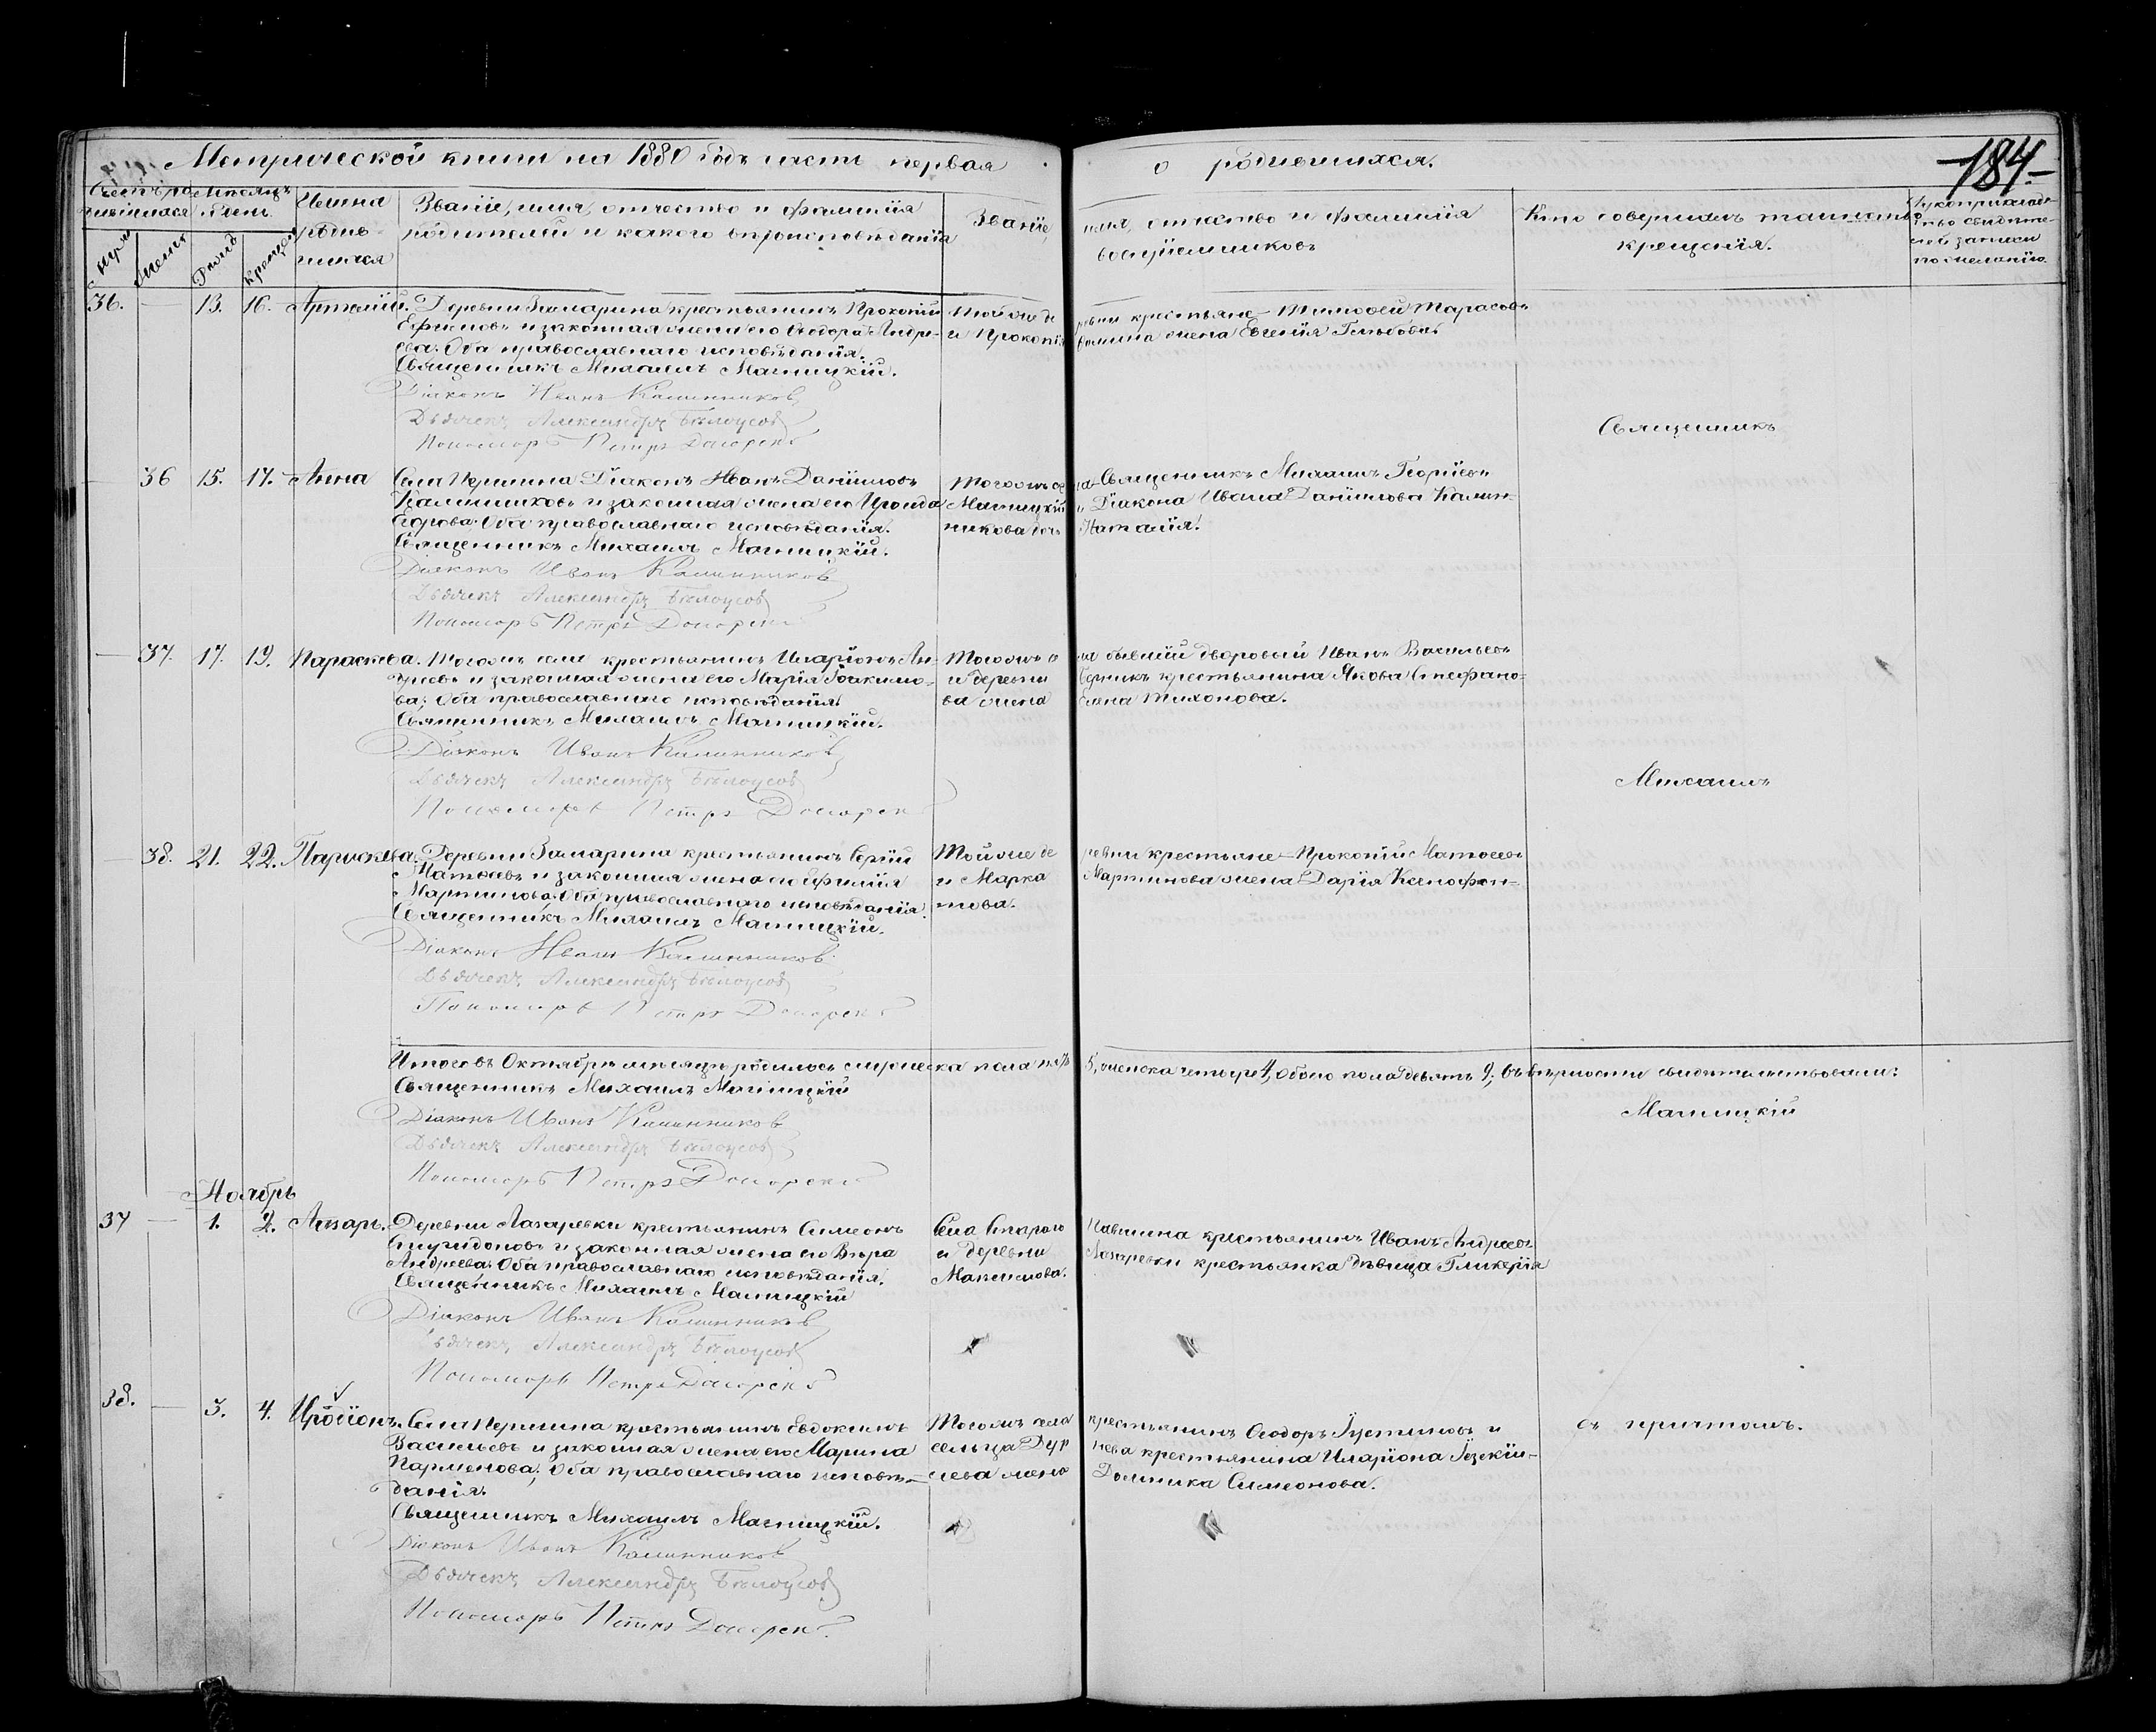 Метрической книги на 1880 годъ часть первая о родившихся.
184.
Счетъ родившихся
Мѣсяцъ и день.
Имена родившихся
Званіе, имя, отчество и фамилія родителей и какого вѣроисповѣданія
Званіе, имя, отчество и фамилія воспріемниковъ
Кто совершалъ таинство крещенія.
Рукоприкладство свидѣтелей записи по желанію.
муж. женс. Рожд. Крещен.
36. — 13. 16. Артемій. Деревни Замарина крестьянинъ Прокопій
Ефимовъ и законная жена его Ѳеодора Андре-
ева. Оба православнаго исповѣданія.
Священникъ Михаилъ Магницкій.
Діаконъ Иванъ Калинниковъ
Дьячекъ Александръ Бѣлоусовъ
Пономарь Петръ
Той же деревни крестьяне — Тимофей Тарасовъ
и Прокопія жена Евгенія Глѣбова.
Священникъ
— 36 15. 17. Анна Села Першина Діаконъ Иванъ Даніиловъ
Калинниковъ и законная жена его Ираида
Егорова. Оба православнаго исповѣданія.
Священникъ Михаилъ Магницкій.
Діаконъ Иванъ Калинниковъ
Дьячекъ Александръ Бѣлоусовъ
Пономарь Петръ
Того же села Священникъ Михаилъ Георгіевъ
Магницкій и Діакона Ивана Даніилова Калин-
никова дочь Наталія.
— 37. 17. 19. Параскева. Того же села крестьянинъ Иларіонъ Ан-
дреевъ и законная жена его Марія Іоакимо-
ва. Оба православнаго исповѣданія.
Священникъ Михаилъ Магницкій.
Діаконъ Иванъ Калинниковъ
Дьячекъ Александръ Бѣлоусовъ
Пономарь Петръ
Того же села бывшій дворовый Иванъ Васильевъ
и деревни крестьянина Якова Стефано-
ва жена Тихонова.
Михаилъ
— 38. 21. 22. Параскева. Деревни Замарина крестьянинъ Сергій
Матѳеевъ и законная жена его Ефимія
Мартинова. Оба православнаго исповѣданія.
Священникъ Михаилъ Магницкій.
Діаконъ Иванъ Калинниковъ
Дьячекъ Александръ Бѣлоусовъ
Пономарь Петръ
Той же деревни крестьяне — Прокопій Матѳеевъ
и Марка Мартинова жена Дарія Ксенофон-
това.
Итого въ Октябрѣ мѣсяцѣ родилось мужеска пола пять 5, женска четыре 4, обоего пола девять 9; въ вѣрности свидѣтельствовали:
Священникъ Михаилъ Магницкій
Діаконъ Иванъ Калинниковъ
Дьячекъ Александръ Бѣлоусовъ
Пономарь Петръ
Магницкій
Ноябрь
37 — 1. 2. Лазарь. Деревни Лазаревки крестьянинъ Симеонъ
Спиридоновъ и законная жена его Вѣра
Андреева. Оба православнаго исповѣданія.
Священникъ Михаилъ Магницкій
Діаконъ Иванъ Калинниковъ
Дьячекъ Александръ Бѣлоусовъ
Пономарь Петръ
Села Стараго Павшина крестьянинъ Иванъ Андреевъ
и деревни Лазаревки крестьянка дѣвица Гликерія
Максимова.
38. — 3. 4. Иродіонъ. Села Першина крестьянинъ Евдокимъ
Васильевъ и законная жена его Марина
Парменова. Оба православнаго исповѣ-
данія.
Священникъ Михаилъ Магницкій.
Діаконъ Иванъ Калинниковъ
Дьячекъ Александръ Бѣлоусовъ
Пономарь Петръ
Того же села крестьянинъ Ѳеодоръ Іустиновъ и
сельца крестьянина Иларіона Іезекіи-
лева жена Домника Симеонова.
съ причтомъ.